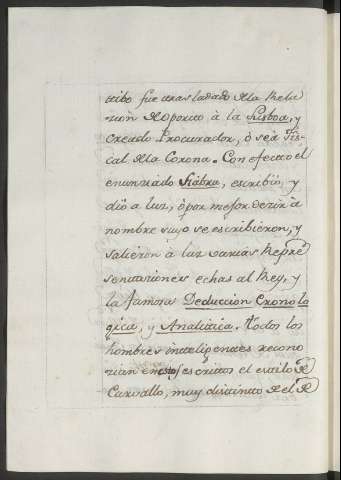 tibo fue trasladado de la Rela
cion de Oporto à la Lisboa, y
Creado Procurador, ò sea Fis-
cal de la Corona. Con efecto el
enunziado Siabra, escribiò, y
diò a luz, ò por mejor dezir à
nombre suyo se escribieron, y
salieron à luz varias Repre
sentaziones echas al Rey, y
la famosa Deduccion Cronolo
gica, y Analitica. Todos los
hombres inteligentes recono
zian en estos escritos el estilo de
Carvallo, muy distinto de el de